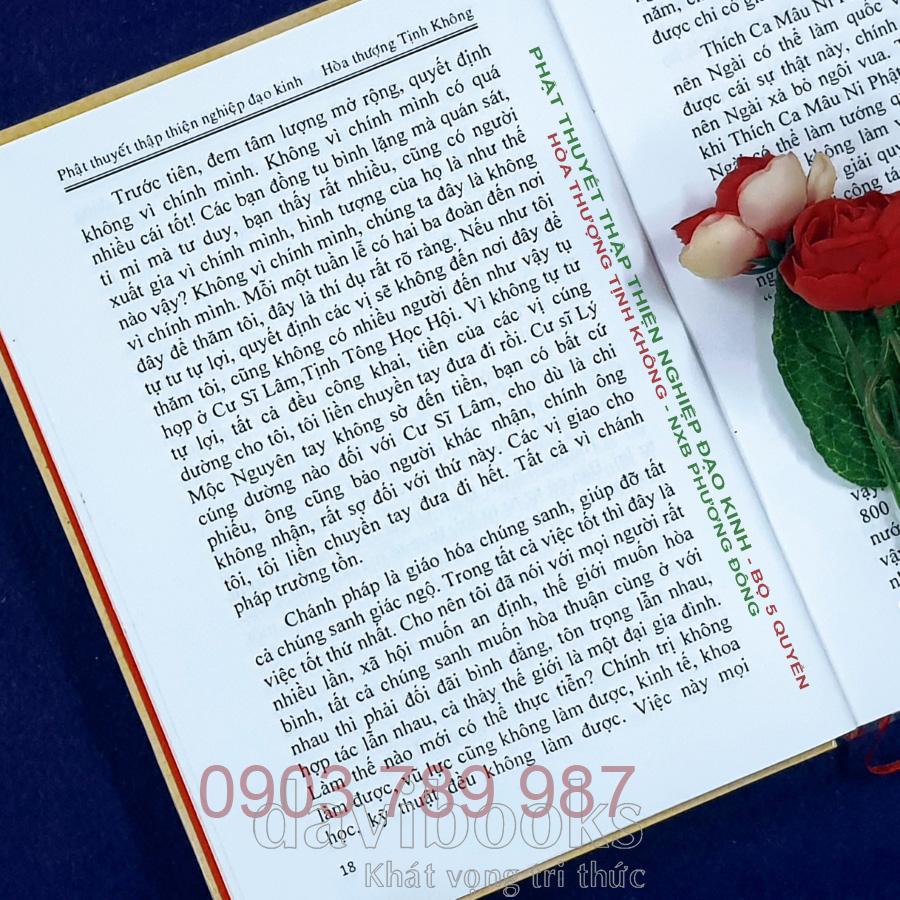 Phật thuyết thập thiện nghiệp đạo kinh Hòa thượng Tịnh Không
Trước tiên, đem tâm lượng mở rộng, quyết định
không vì chính mình. Không vì chính mình có quá
nhiều cái tốt! Các bạn đồng tu bình lặng mà quán sát,
tỉ mỉ mà tư duy, bạn thấy rất nhiều, cũng có người
xuất gia vì chính mình, hình tượng của họ là như thế
nào vậy? Không vì chính mình, chúng ta đây là không
vì chính mình. Mỗi một tuần lễ có hai ba đoàn đến nơi
đây để thăm tôi, đây là thí dụ rất rõ ràng. Nếu như tôi
tự tư tự lợi, quyết định các vị sẽ không đến nơi đây để
thăm tôi, cũng không có nhiều người đến như vậy tụ
họp ở Cư Sĩ Lâm,Tịnh Tông Học Hội. Vì không tự tư
tự lợi, tất cả đều công khai, tiền của các vị cúng
dường cho tôi, tôi liền chuyền tay đưa đi rồi. Cư sĩ Lý
Mộc Nguyên tay không sờ đến tiền, bạn có bất cứ
cúng dường nào đối với Cư Sĩ Lâm, cho dù là chi
phiếu, ông cũng bảo người khác nhận, chính ông
không nhận, rất sợ đối với thứ này. Các vị giao cho
tôi, tôi liền chuyền tay đưa đi hết. Tất cả vì chánh
pháp trường tồn.
Chánh pháp là giáo hóa chúng sanh, giúp đỡ tất
cả chúng sanh giác ngộ. Trong tất cả việc tốt thì đây là
việc tốt thứ nhất. Cho nên tôi đã nói với mọi người rất
nhiều lần, xã hội muốn an định, thế giới muốn hòa
bình, tất cả chúng sanh muốn hòa thuận cùng ở với
nhau thì phải đối đãi bình đẳng, tôn trọng lẫn nhau,
hợp tác lẫn nhau, cả thảy thế giới là một đại gia đình.
Làm thế nào mới có thể thực tiễn? Chính trị không
làm được, vũ lực cũng không làm được, kinh tế, khoa
học, kỹ thuật đều không làm được. Việc này mọi
18
PHẬT THUYẾT THẬP THIỆN NGHIỆP ĐẠO KINH - BỘ 5 QUYỂN
HÒA THƯỢNG TỊNH KHÔNG - NXB PHƯƠNG ĐÔNG
năm, chỉ
được chỉ có giá
Thích Ca Mâu Ni
nên Ngài có thể làm quốc
được cái sự thật này, chính
nên Ngài xả bỏ ngôi vua.
khi Thích Ca Mâu Ni Phật
Ngài có thể làm tướng
không làm
giải quy
công tá
vậy
800
nướ
0903 789 987
davibooks
Khát vọng tri thức